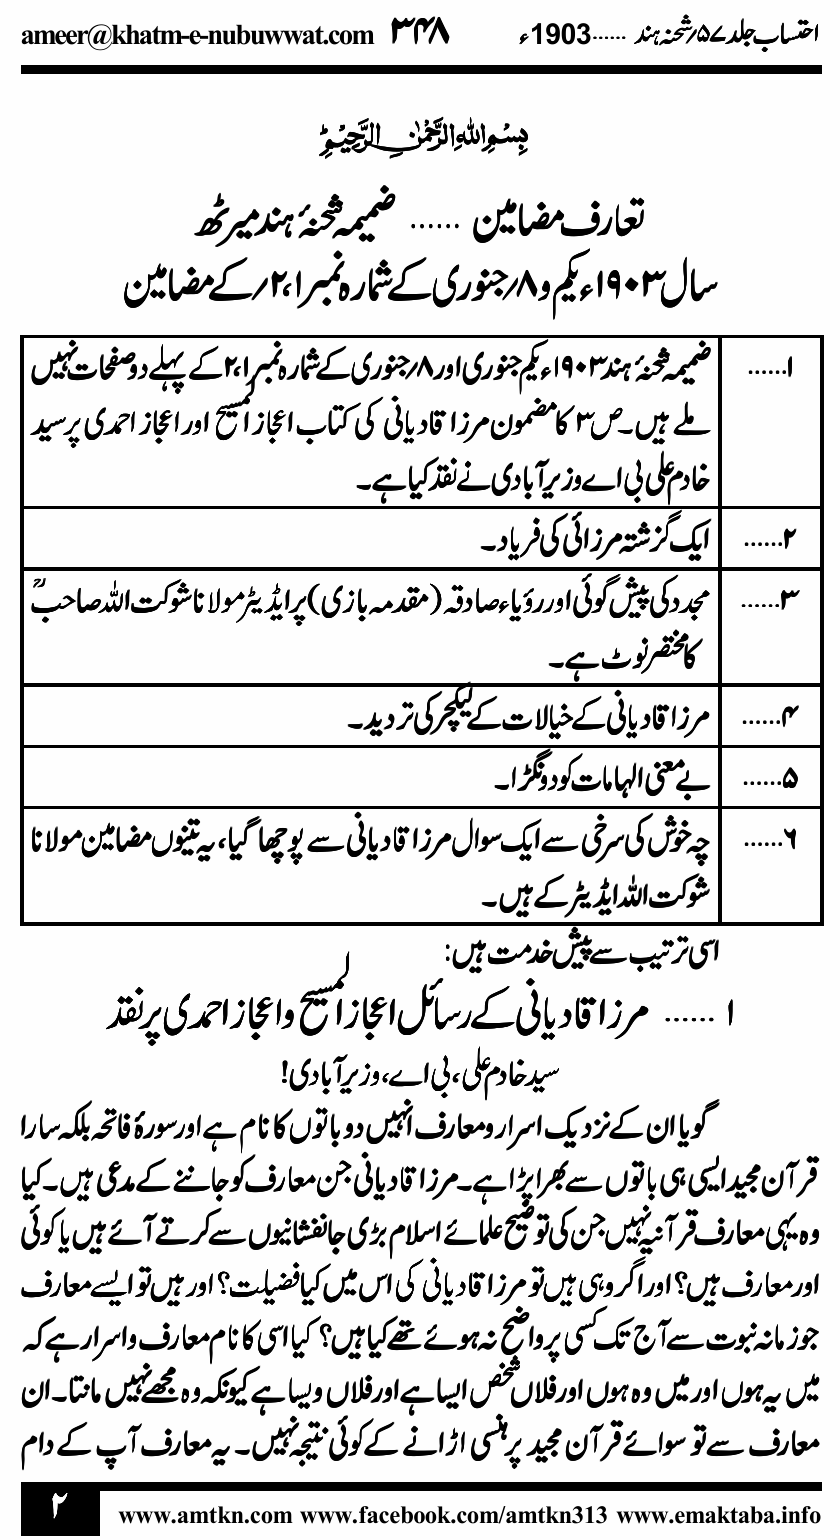 احتساب جلد ۵۷؍شحنہ ہند ......1903ء ۳۴۸ ameer@khatm-e-nubuwwat.com
بِسْمِ اللهِ الرَّحْمٰنِ الرَّحِيْمِ
تعارف مضامین ...... ضمیمہ شحنۂ ہند میرٹھ
سال ۱۹۰۳ء یکم و ۸؍جنوری کے شمارہ نمبر ۱،۲؍کے مضامین
۱...... ضمیمہ شحنۂ ہند ۱۹۰۳ء یکم جنوری اور ۸؍جنوری کے شمارہ نمبر ۱،۲ کے پہلے دو صفحات نہیں
ملے ہیں۔ ص۳ کا مضمون مرزا قادیانی کی کتاب اعجاز المسیح اور اعجاز احمدی پر سید
خادم علی بی اے وزیر آبادی نے نقد کیا ہے۔
۲...... ایک گزشتہ مرزائی کی فریاد۔
۳...... مجدد کی پیش گوئی اور رؤیاء صادقہ (مقدمہ بازی) پر ایڈیٹر مولانا شوکت اللہ صاحبؒ
کا مختصر نوٹ ہے۔
۴...... مرزا قادیانی کے خیالات کے لیکچر کی تردید۔
۵...... بے معنی الہامات کو دونگڑا۔
۶...... چہ خوش کی سرخی سے ایک سوال مرزا قادیانی سے پوچھا گیا، یہ تینوں مضامین مولانا
شوکت اللہ ایڈیٹر کے ہیں۔
اسی ترتیب سے پیش خدمت ہیں:
۱ ...... مرزا قادیانی کے رسائل اعجاز المسیح و اعجاز احمدی پر نقد
سید خادم علی، بی اے، وزیر آبادی!
گویا ان کے نزدیک اسرار و معارف انہیں دو باتوں کا نام ہے اور سورۂ فاتحہ بلکہ سارا
قرآن مجید ایسی ہی باتوں سے بھرا پڑا ہے۔ مرزا قادیانی جن معارف کو جاننے کے مدعی ہیں۔ کیا
وہ یہی معارف قرآنیہ نہیں جن کی توضیح علمائے اسلام بڑی جانفشانیوں سے کرتے آئے ہیں یا کوئی
اور معارف ہیں؟ اور اگر وہی ہیں تو مرزا قادیانی کی اس میں کیا فضیلت؟ اور ہیں تو ایسے معارف
جو زمانہ نبوت سے آج تک کسی پر واضح نہ ہوئے تھے کیا ہیں؟ کیا اسی کا نام معارف و اسرار ہے کہ
میں یہ ہوں اور میں وہ ہوں اور فلاں شخص ایسا ہے اور فلاں ویسا ہے کیونکہ وہ مجھے نہیں مانتا۔ ان
معارف سے تو سوائے قرآن مجید پر ہنسی اڑانے کے کوئی نتیجہ نہیں۔ یہ معارف آپ کے دام
۲ www.amtkn.com www.facebook.com/amtkn313 www.emaktaba.info